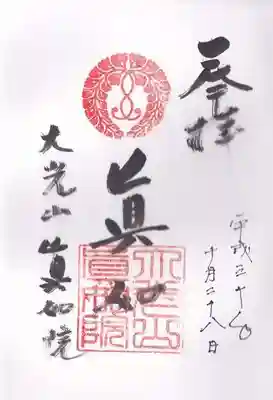 奉拝
平成三十年
十月二十八日
眞如
大光山
眞如院
大光山
眞如院